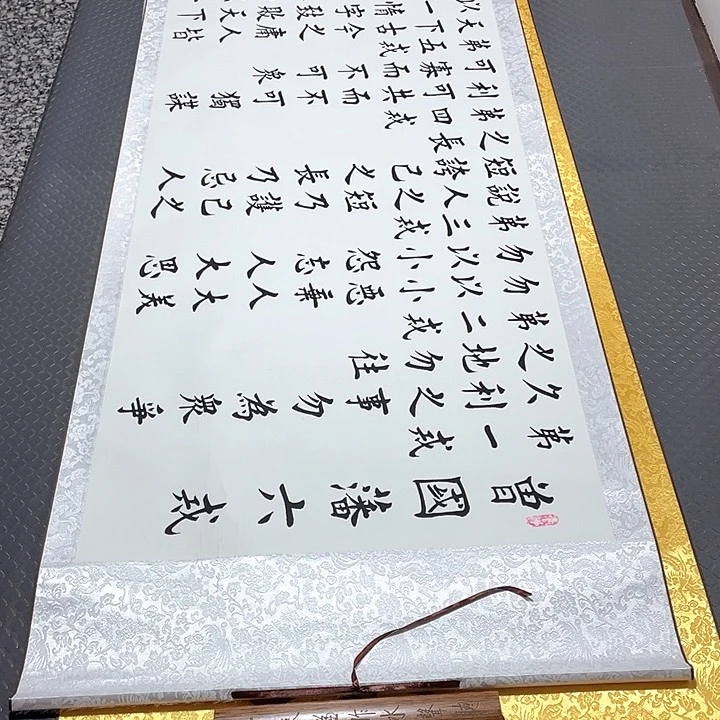 曾國藩六戒
第一戒
久利之事勿為眾爭
之地勿往
第二戒
勿以小惡棄人大美
勿以小怨忘人大恩
第三戒
說人之短乃護己之
短誇己之長乃忌人
之長
第四戒
利可共而不可獨謀
可寡而不可眾
第五戒
天下古今之庸人皆
以一惰字致敗天下